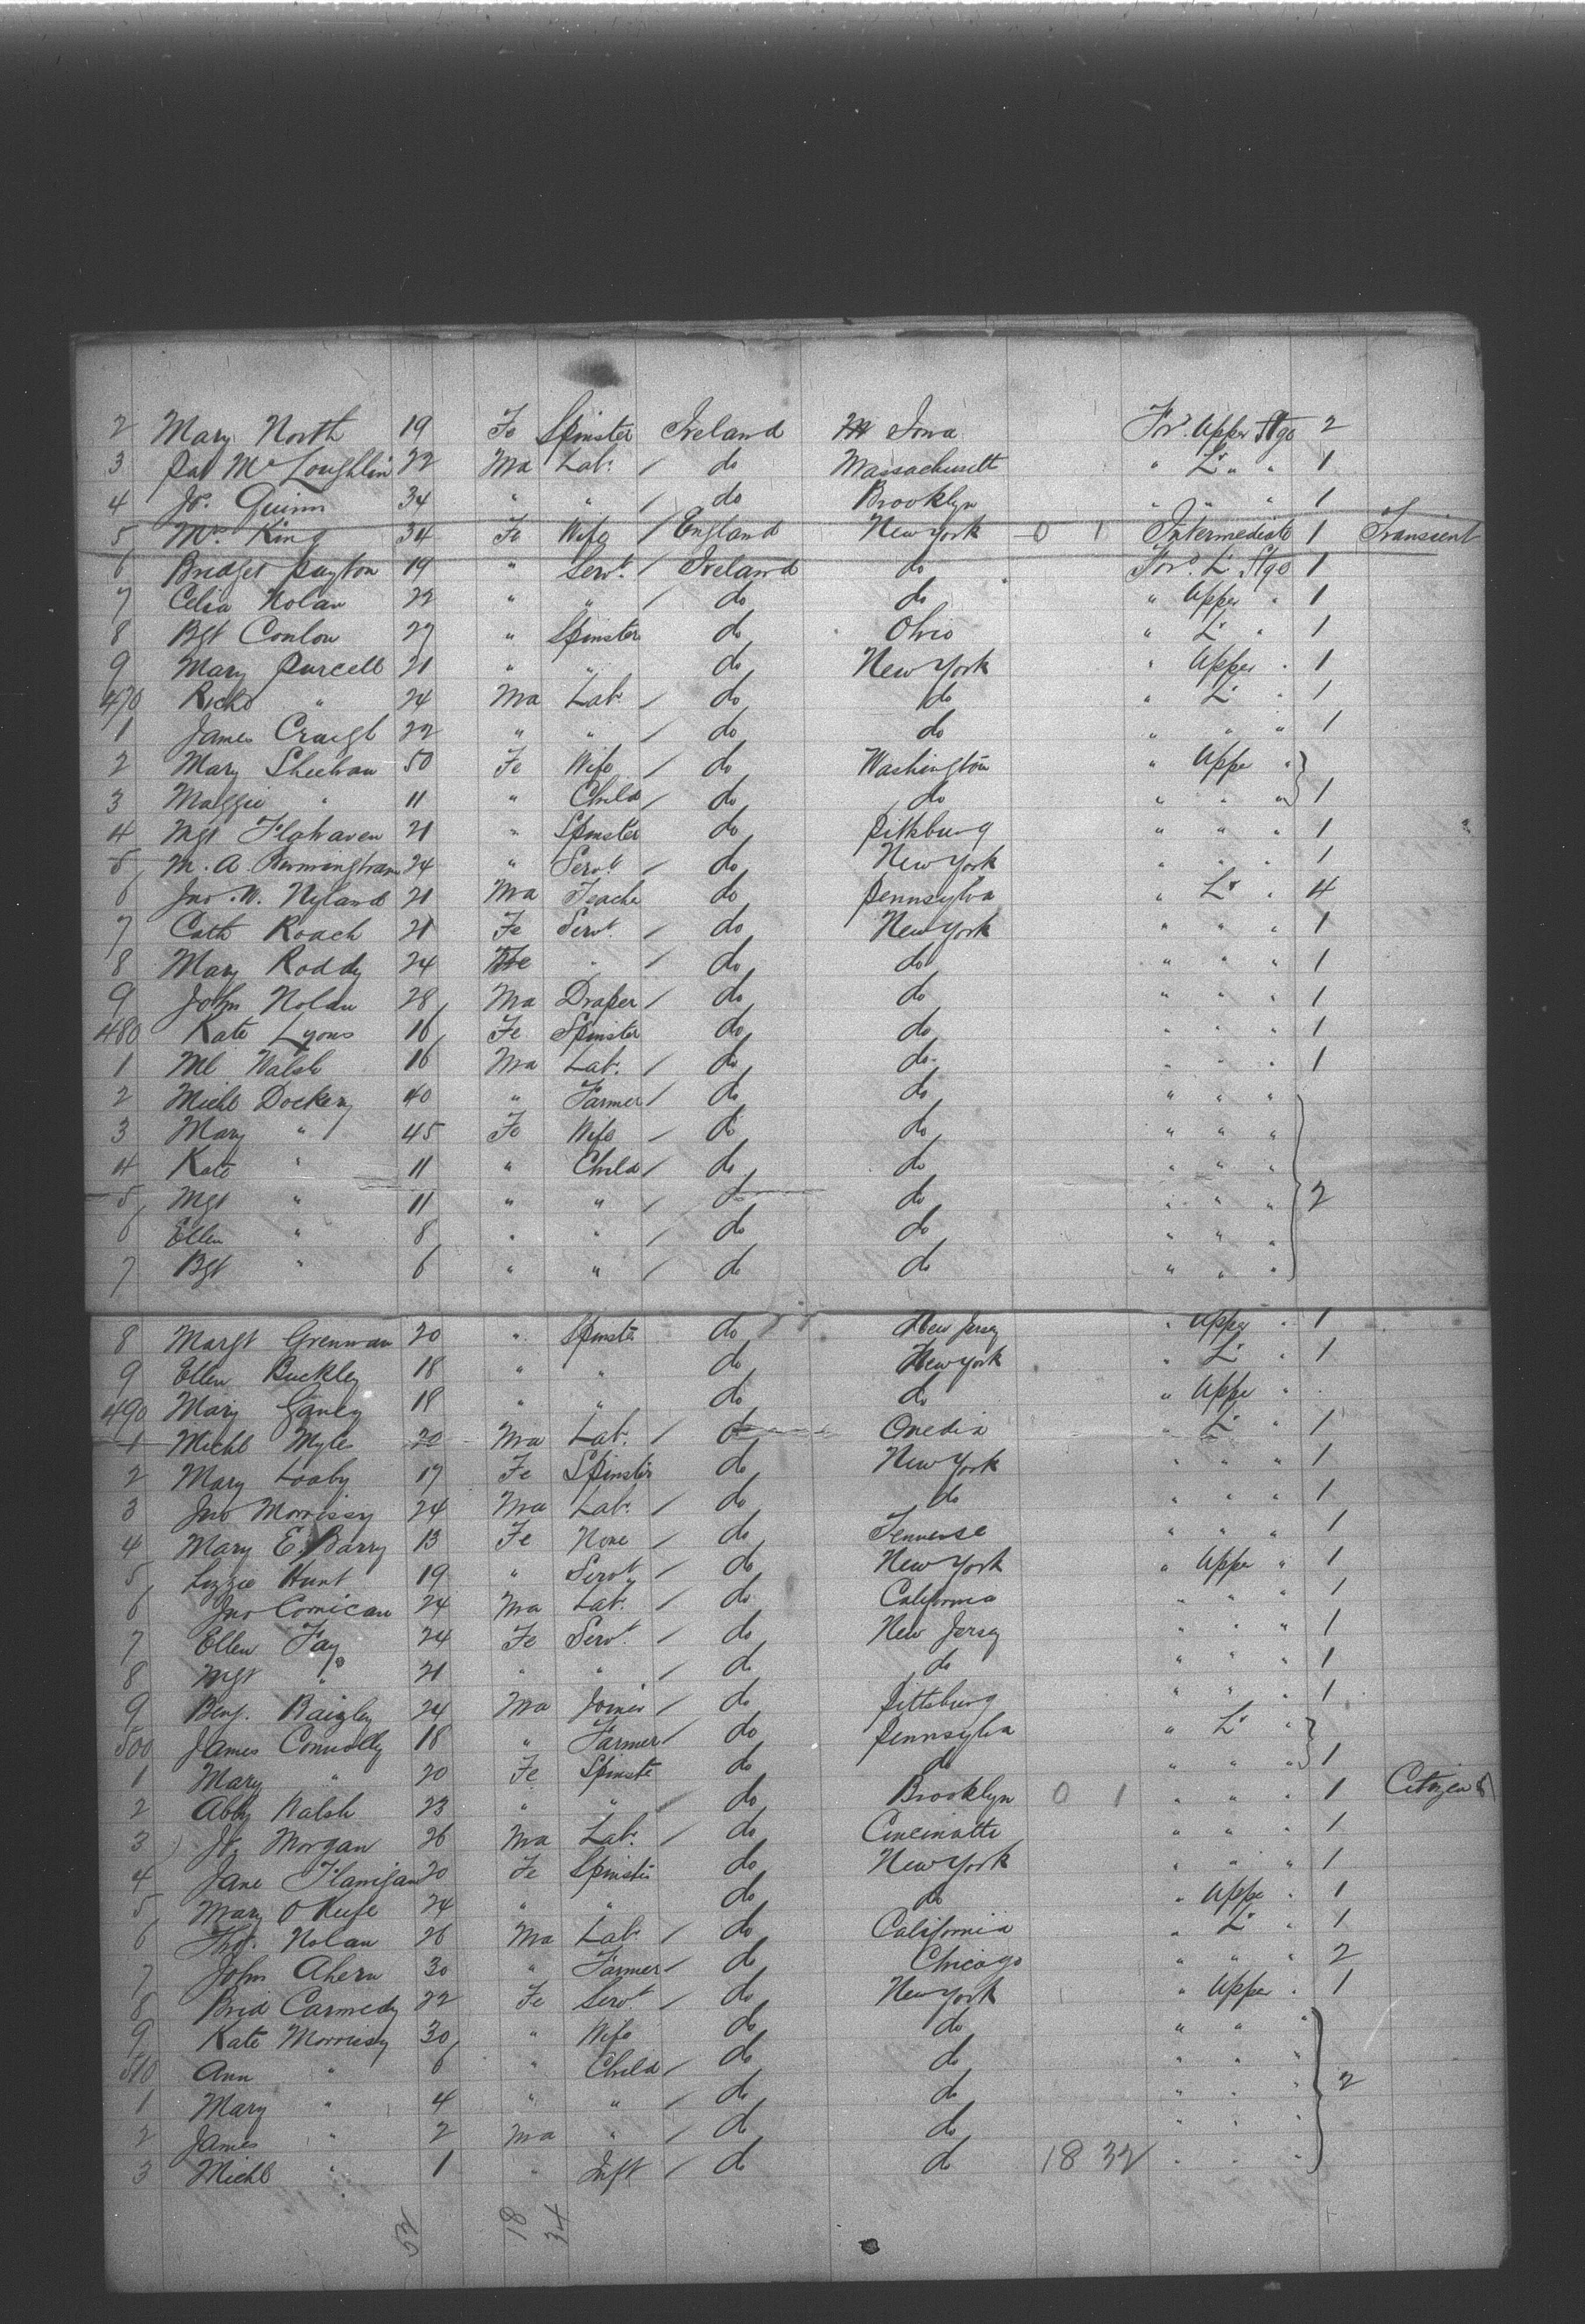 2 Mary North 19 Fe Spinster Ireland Iowa For'd Upper Stge 2
3 Pat McLoughlin 22 Ma Lab. / do Massachusett " L'r " " 1
4 Js. Quinn 34 " " / do Brooklyn " " " 1
5 Mrs King 34 Fe Wife / England New York 0 1 Intermediate 1 Transient
6 Bridget Payton 19 " Servt. / Ireland do For'd L'r Stge 1
7 Celia Nolan 22 " " / do do " Upper " 1
8 Bgt Conlon 27 " Spinster do Ohio " L'r " 1
9 Mary Purcell 21 " " do New York " Upper " 1
470 Richd " 24 Ma Lab. / do do " L'r " 1
1 James 22 " " / do do " " " 1
2 Mary Sheehan 50 Fe Wife / do Washington " Uppe "
3 Maggie " 11 " Child / do do " " " 1
4 Mgt Flahaven 21 " Spinster do Pittsburg " " " 1
5 M. A. Burmingham 24 " Servt / do New York " " " 1
6 Jno. W. Nyland 21 Ma Teache do Pennsylva " L'r " 4
7 Cath Roach 21 Fe Servt. / do New York " " " 1
8 Mary Roddy 24 Fe " / do do " " " 1
9 John Nolan 28 Ma Draper / do do " " " 1
480 Kate Lyons 16 Fe Spinster do do " " " 1
1 Ml Walsh 16 Ma Lab. / do do " " " 1
2 Michl Dockery 40 " Farmer / do do " " "
3 Mary " 45 Fe Wife / do do " " "
4 Kate " 11 " Child / do do " " "
5 Mgt " 11 " " / do do " " " 2
6 Ellen " 8 " " / do do " " "
7 Bgt " 6 " " / do do " " "
8 Margt Grennan 20 " Spinste do New Jersey " Upper " 1
9 Ellen Buckley 18 " " do New York " L'r " 1
490 Mary Ganey 18 " " do do " Uppe " "
1 Michl Myles 20 Ma Lab. / do Onedia " L'r " 1
2 Mary Looby 17 Fe Spinster do New York " " " 1
3 Jno Morrissy 24 Ma Lab. / do do " " " 1
4 Mary E. Barry 13 Fe None / do Tennense " " " 1
5 Lizzie Hunt 19 " Servt / do New York " Uppe " 1
6 Jno Comican 24 Ma Lab. / do California " " " 1
7 Ellen Fay 24 Fe Servt. / do New Jersey " " " 1
8 Mgt " 21 " " / do do " " " 1
9 Benj. 24 Ma Joiner / do Pittsburg " " " 1
500 James Connolly 18 " Farmer / do Pennsylva " L'r "
1 Mary " 20 Fe Spinste do do " " " 1
2 Abby Walsh 23 " " / do Brooklyn 0 1 " " " 1 Citizen
3 Js Morgan 26 Ma Lab. / do Cincinatti " " " 1
4 Jane Flanigan 20 Fe Spinste do New York " " " 1
5 Mary O Keefe 24 " " do do " Uppe " 1
6 Thos. Nolan 26 Ma Lab. / do California " L'r " 1
7 John Ahern 30 " Farmer / do Chicago " " " 2
8 Brid Carmedy 22 Fe Servt. / do New York " Upper " 1
9 Kate Morrisy 30 " Wife do do " " "
510 Ann " 6 " Child / do do " " "
1 Mary " 4 " " / do do " " " 2
2 James " 2 Ma " / do do " " "
3 Michl " 1 " Inft / do do 18 32 " " "
52 18 34